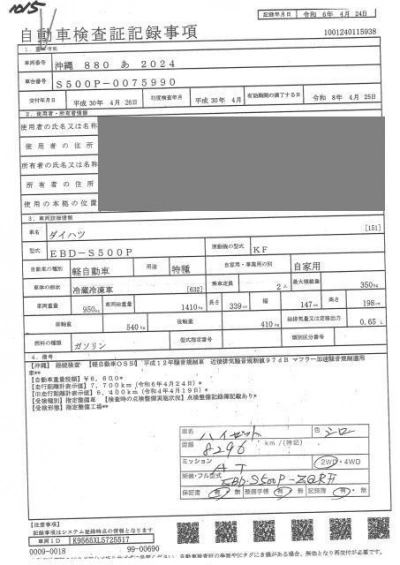 1015
記録年月日 令和 6年 4月 24日
自動車検査証記録事項
1001240115938
1. 基本情報
車両番号 沖縄 880 あ 2024
車台番号 S500P-0075990
交付年月日 平成 30年 4月 26日 初度検査年月 平成 30年 4月 有効期間の満了する日 令和 8年 4月 25日
2. 使用者・所有者情報
使用者の氏名又は名称
使用者の住所
所有者の氏名又は名称
所有者の住所
使用の本拠の位置
3. 車両詳細情報
車名 ダイハツ [151]
型式 EBD-S500P 原動機の型式 KF
自動車の種別 軽自動車 用途 特種 自家用・事業用の別 自家用
車体の形状 冷蔵冷凍車 [632] 乗車定員 2人 最大積載量 350kg
車両重量 950kg 車両総重量 1410kg 長さ 339cm 幅 147cm 高さ 198cm
前軸重 540kg 後軸重 410kg 総排気量又は定格出力 0.65 L
燃料の種類 ガソリン 型式指定番号 類別区分番号
4. 備考
【沖縄】 継続検査 【軽自動車OSS】 平成12年騒音規制車 近接排気騒音規制値97dB マフラー加速騒音規制適用
車**
【自動車重量税額】¥6,600*
【走行距離計表示値】7,700km(令和6年4月24日)*
【旧走行距離計表示値】6,400km(令和4年4月19日)*
【受検種別】指定整備車 【検査時の点検整備実施状況】点検整備記録簿記載あり*
【受検形態】指定整備工場**
車名 ハイゼット 色 シロ
距離 8296 km / (特記)
ミッション AT 2WD・4WD
型式・フル型式 EBD-S500P-ZQRF
保証書 有・無 整備手帳 有・無 記録簿 有・無
【注意事項】
記録事項はシステム記録時点の情報となります
車両ID K9565XL5725517
0009-0018 99-00690